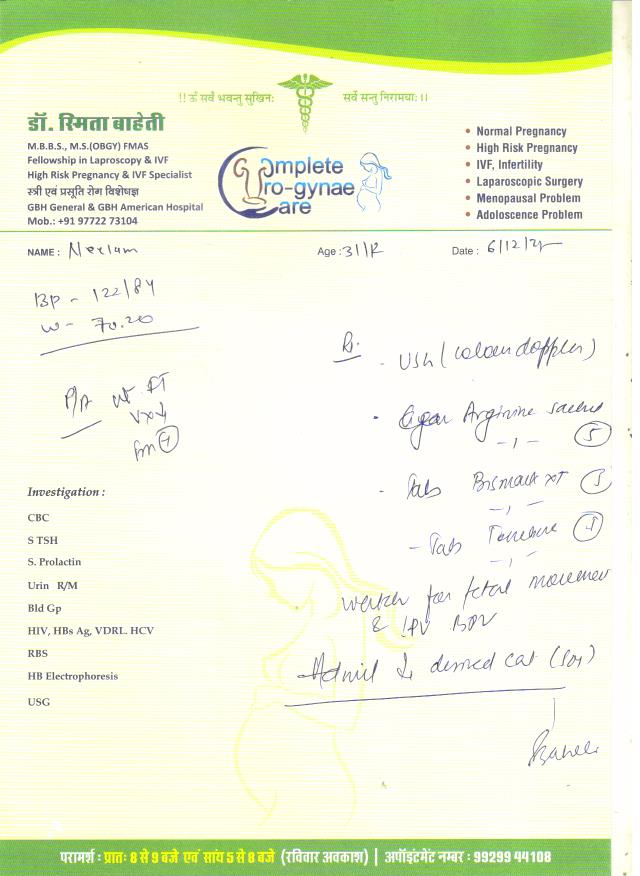 !! ॐ सर्वे भवन्तु सुखिनः सर्वे सन्तु निरामयाः ।।
डॉ. स्मिता बाहेती
M.B.B.S., M.S.(OBGY) FMAS
Fellowship in Laproscopy & IVF
High Risk Pregnancy & IVF Specialist
स्त्री एवं प्रसूति रोग विशेषज्ञ
GBH General & GBH American Hospital
Mob.: +91 97722 73104
Complete
Uro-gynae
Care
• Normal Pregnancy
• High Risk Pregnancy
• IVF, Infertility
• Laparoscopic Surgery
• Menopausal Problem
• Adoloscence Problem
NAME : Neelam Age : 31 Date : 6/12/
BP - 122/84
W - 70.20
P/A
Rx
- USG (colour doppler)
- Arginine sachet
-1-
- Tab
-1-
- Tab
-1-
for fetal movement
& 
Admit
Investigation :
CBC
S TSH
S. Prolactin
Urin R/M
Bld Gp
HIV, HBs Ag, VDRL. HCV
RBS
HB Electrophoresis
USG
परामर्श : प्रातः 8 से 9 बजे एवं सांय 5 से 8 बजे (रविवार अवकाश) | अपॉइंटमेंट नम्बर : 99299 44108